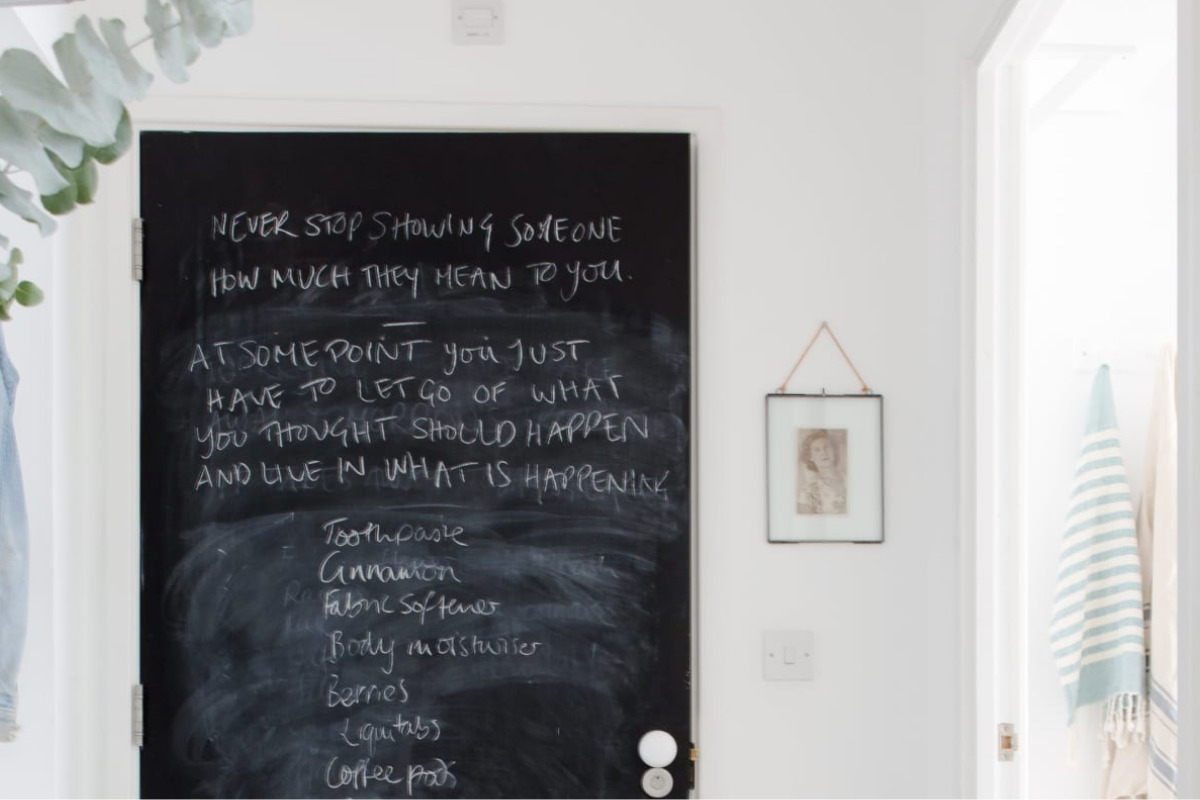 NEVER STOP SHOWING SOMEONE
HOW MUCH THEY MEAN TO YOU.
AT SOME POINT YOU JUST
HAVE TO LET GO OF WHAT
YOU THOUGHT SHOULD HAPPEN
AND LIVE IN WHAT IS HAPPENING
Toothpaste
Cinnamon
Fabric softener
Body moisturiser
Berries
Liquitabs
Coffee pods